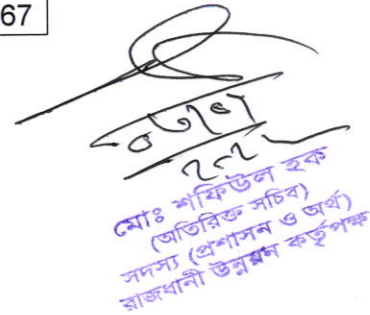 67
মোঃ শফিউল হক
(অতিরিক্ত সচিব)
সদস্য (প্রশাসন ও অর্থ)
রাজধানী উন্নয়ন কর্তৃপক্ষ